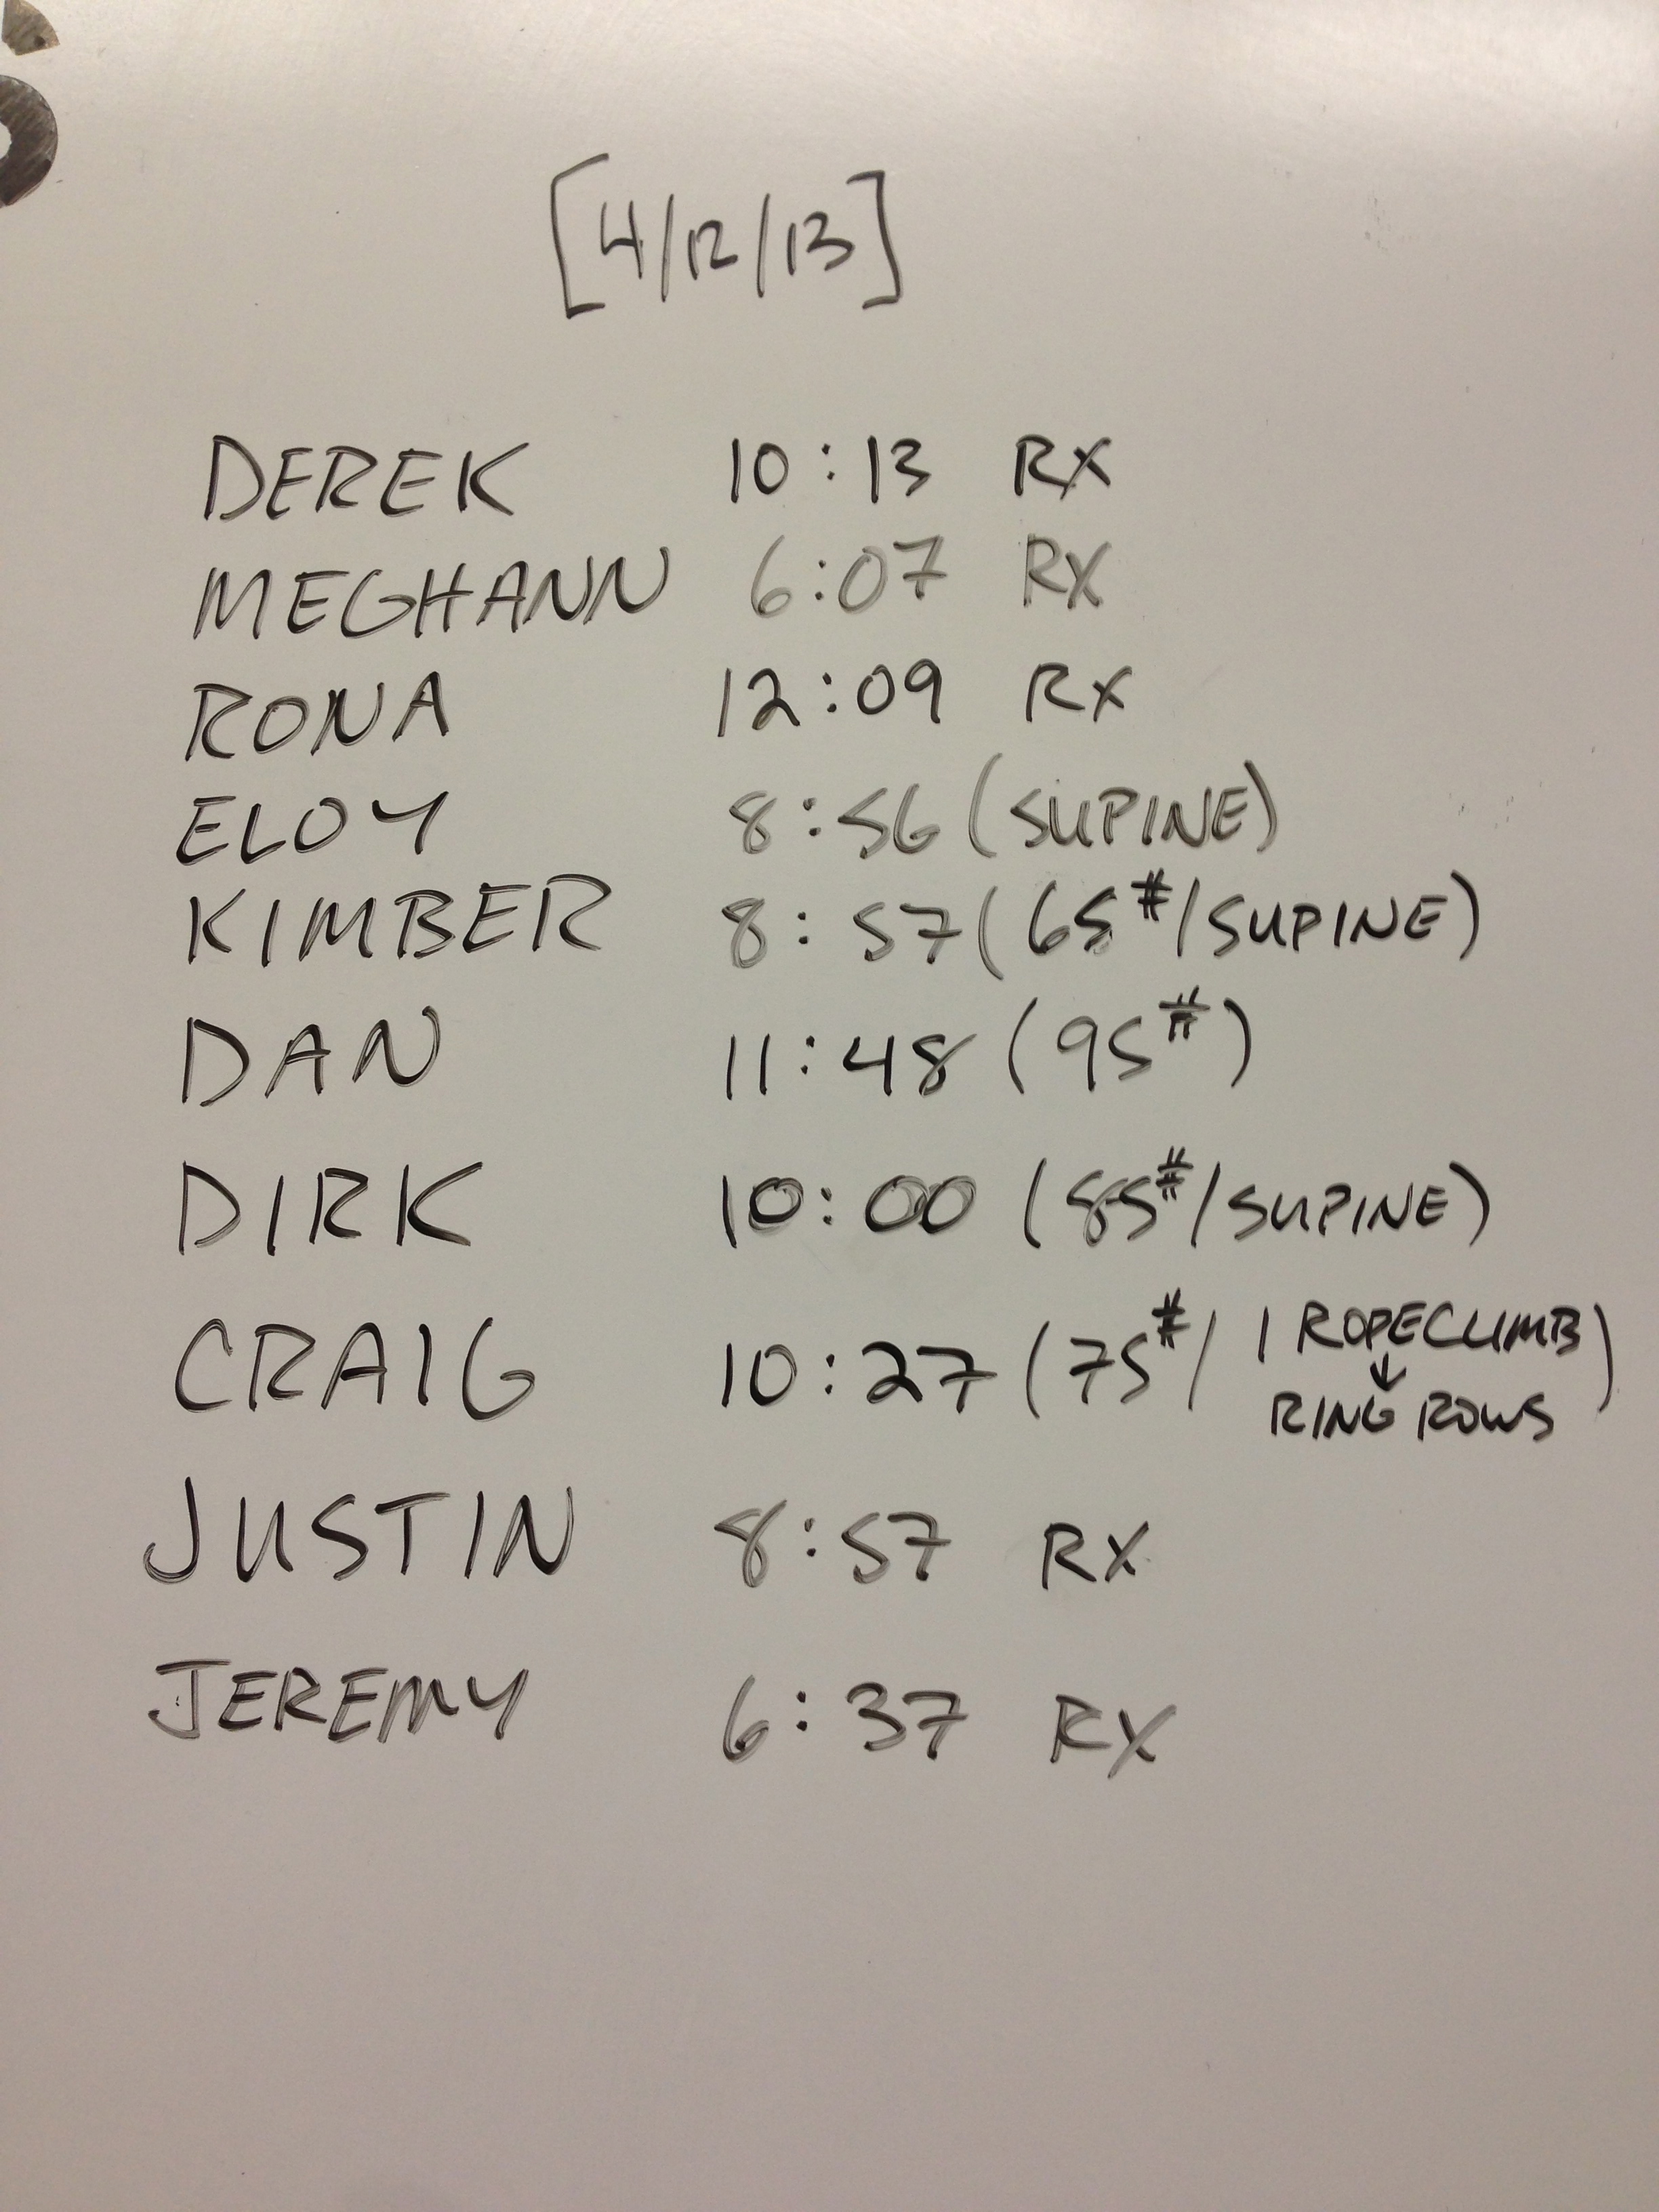 [4/12/13]
DEREK 10:13 RX
MEGHANN 6:07 RX
RONA 12:09 RX
ELOY 8:56 (SUPINE)
KIMBER 8:57 (65#/SUPINE)
DAN 11:48 (95#)
DIRK 10:00 (85#/SUPINE)
CRAIG 10:27 (75#/ 1 ROPECLIMB
↓
RING ROWS)
JUSTIN 8:57 RX
JEREMY 6:37 RX